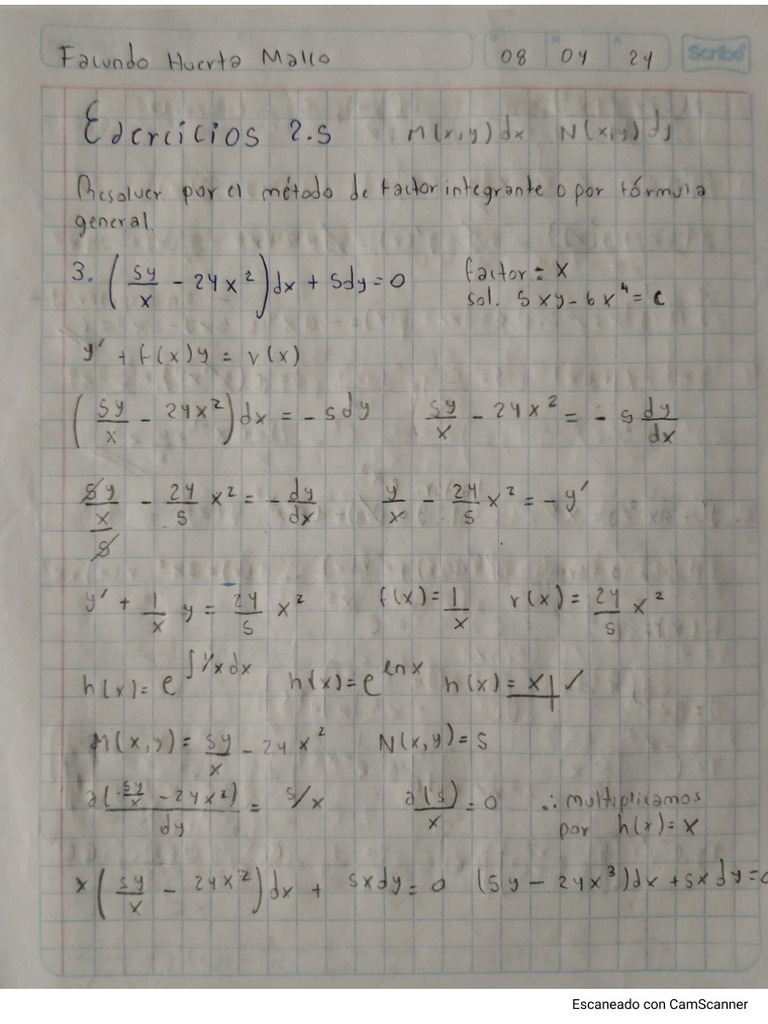 Facundo Huerta Mallo 08 04 24 Scribe
Edercicios 2.5 M(x,y)dx N(x,y)dy
Resolver por el método de factor integrante o por fórmula
general.
3. (5y/x - 24x²)dx + 5dy = 0 factor = x
sol. 5xy - 6x⁴ = c
y' + f(x)y = r(x)
(5y/x - 24x²)dx = -5dy 5y/x - 24x² = -5 dy/dx
5y/x/5 - 24/5 x² = - dy/dx y/x - 24/5 x² = -y'
y' + 1/x y = 24/5 x² f(x) = 1/x r(x) = 24/5 x²
h(x) = e^∫1/x dx h(x) = e^ln x h(x) = x ✓
M(x,y) = 5y/x - 24x² N(x,y) = 5
∂(5y/x - 24x²)/dy = 5/x ∂(5)/x = 0 ∴ multiplicamos
por h(x) = x
x(5y/x - 24x²)dx + 5xdy = 0 (5y - 24x³)dx + 5xdy = 0
Escaneado con CamScanner